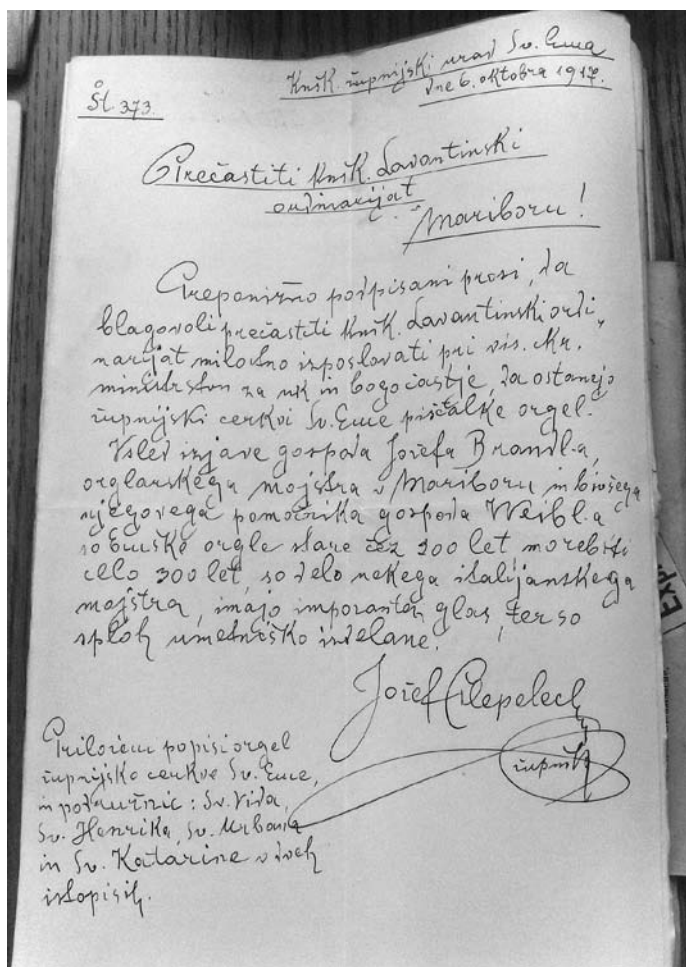 Knšk. župnijski urad Sv. Ema
dne 6. oktobra 1917.
Št. 373.
Prečastiti knšk. Lavantinski
ordinarijat
Mariboru!
Preponižno podpisani prosi, da
blagovoli prečastiti knšk. Lavantinski ordi
narijat milostno izposlovati pri vis. ckr.
ministrstvu za uk in bogočastje, da ostanejo
župnijski cerkvi Sv. Eme piščalke orgel.
Vsled izjave gospoda Josefa Brandl-a,
orglarskega mojstra v Mariboru in bivšega
njegovega pomočnika gospoda Weibl-a
so Emske orgle stare čez 200 let morebiti
celo 300 let, so delo nekega italijanskega
mojstra, imajo imporanten glas, ter so
sploh umetniško izdelane.
Josef
župnik
Priložem popisi orgel
župnijske cerkve Sv. Eme,
in podružnic: Sv. Vida,
Sv. Henrika, Sv. Urbana
in Sv. Katarine v dveh
istopisih.
EXP